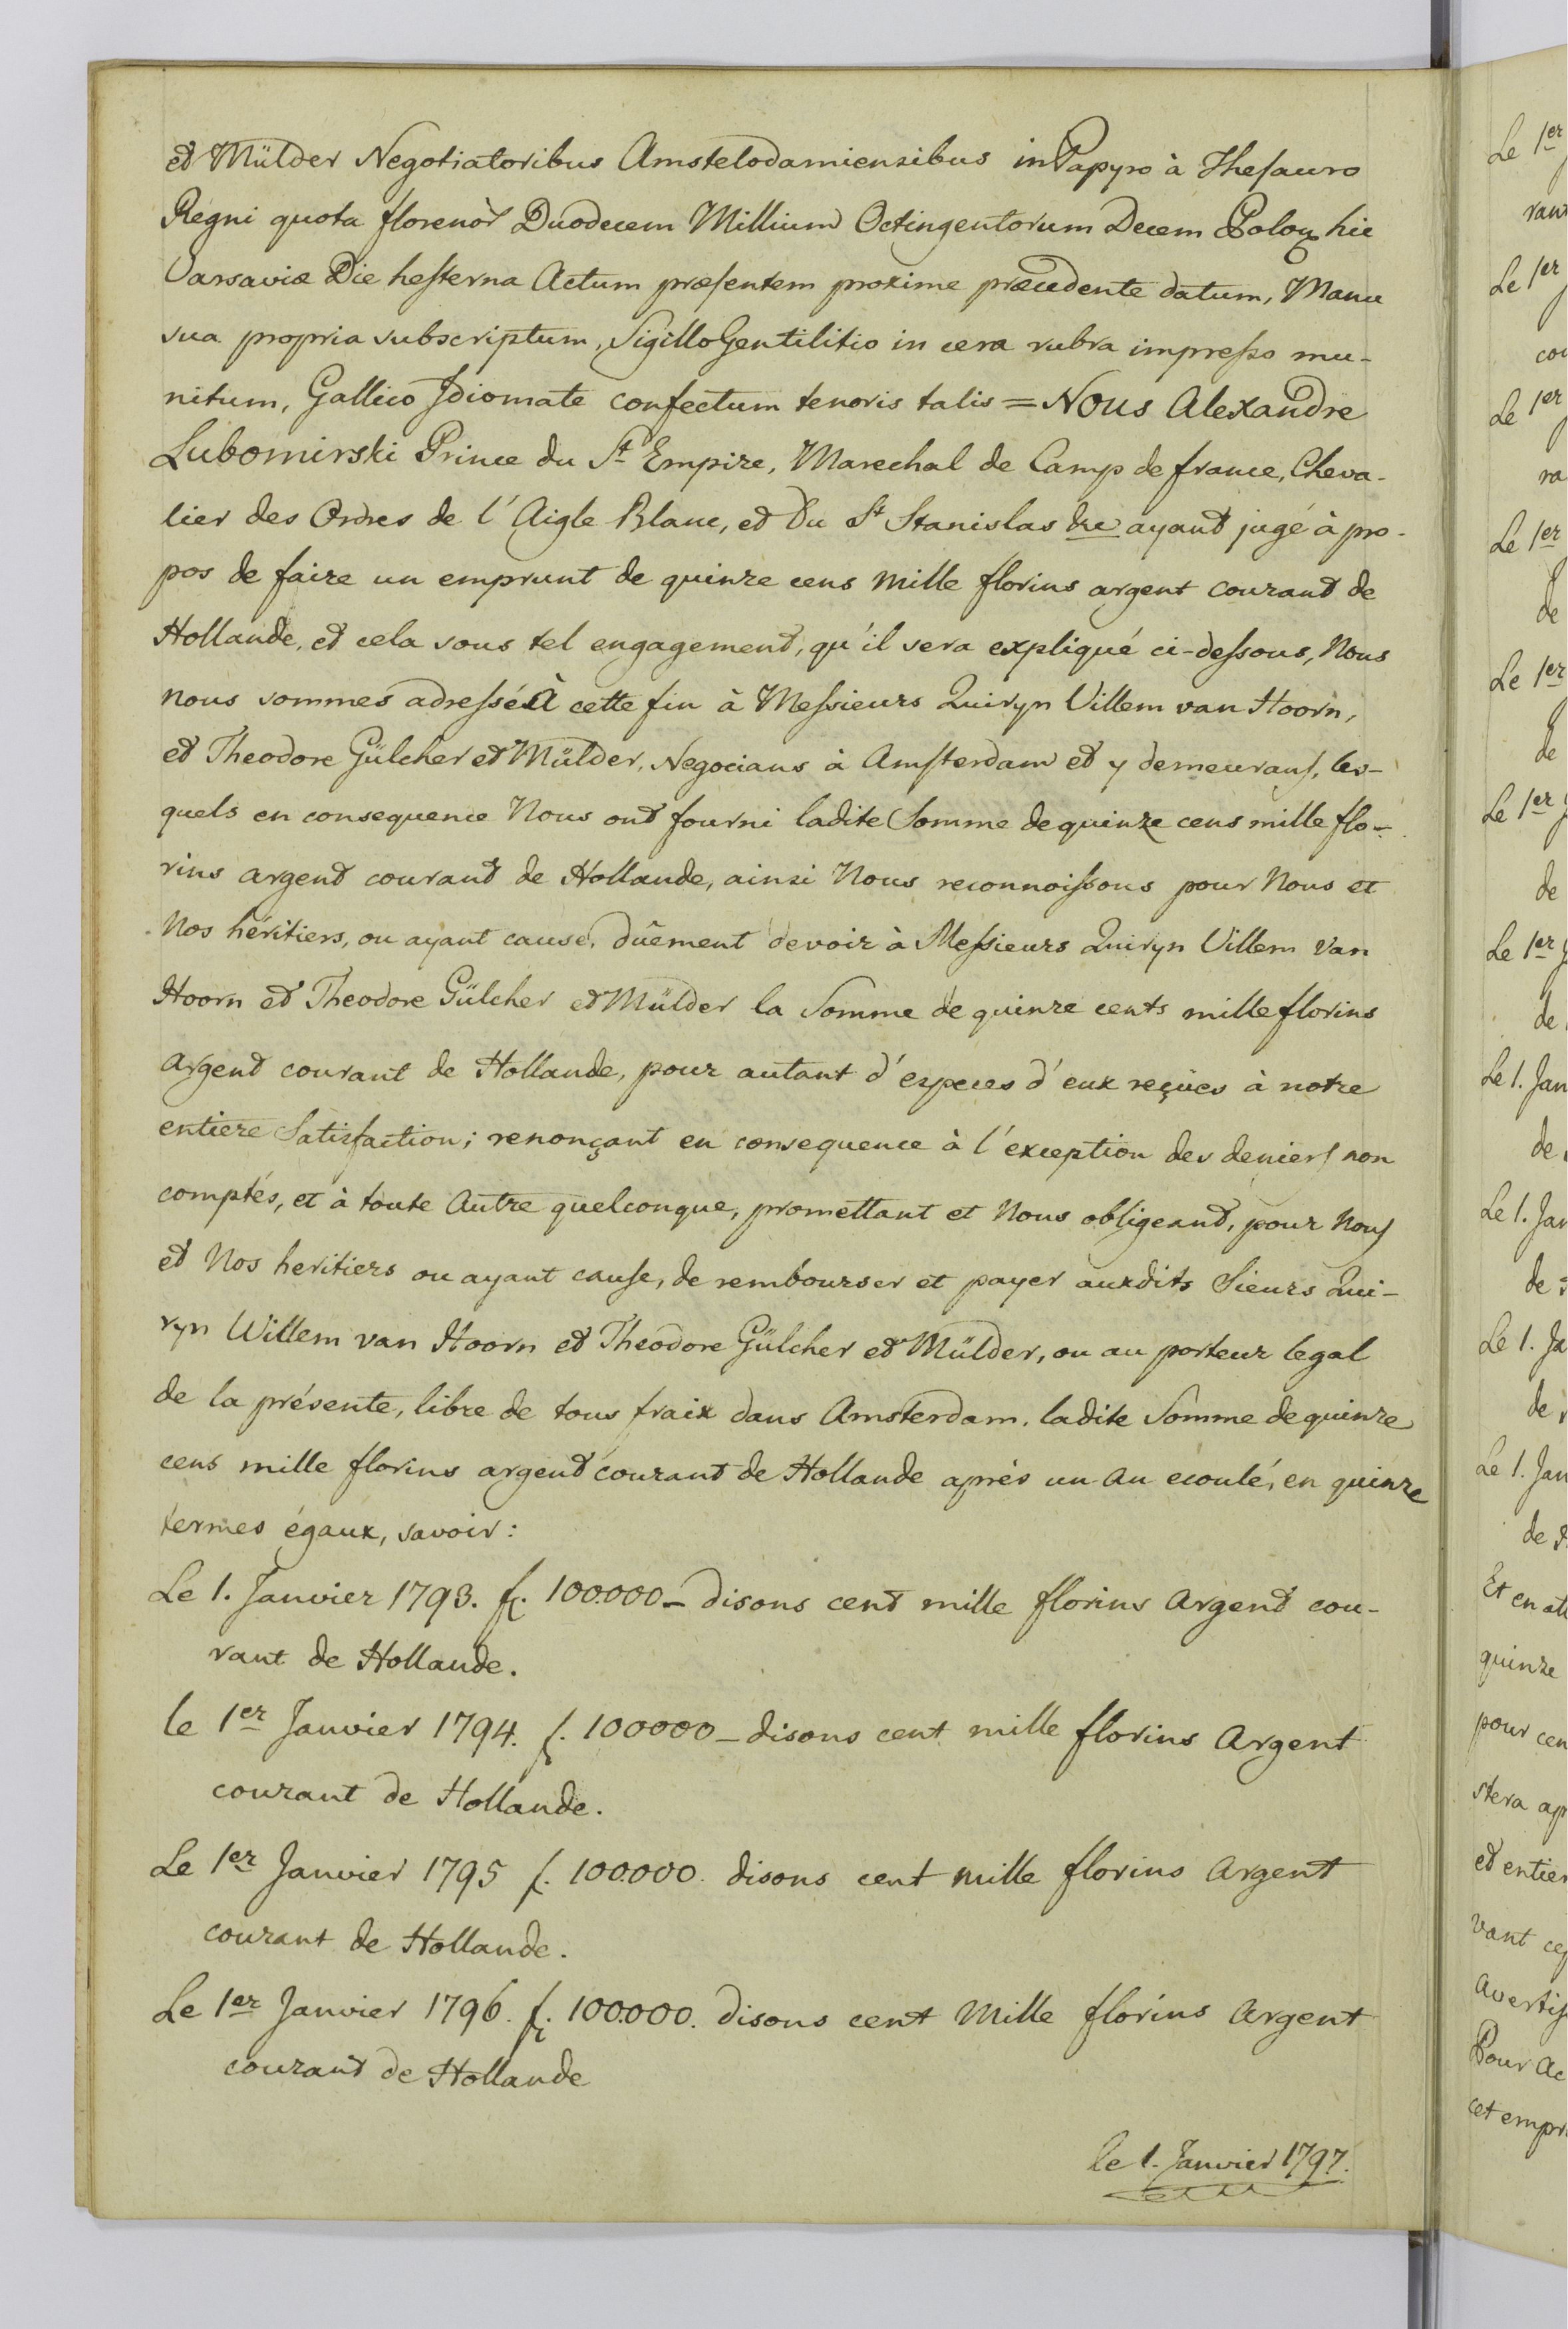 et Mülder Negotiatoribus Amstelodamiensibus in Papyro à Thesauro
Regni quota florenor Duodecem Millium Octingentorum Decem Polon hic
Varsaviæ Die hesterna Actum præsentem proxime præcedente datum, Manu
sua propria subscriptum, Sigillo Gentilitio in cera rubra impresso mu-
nitum, Gallico Idiomate confectum tenoris talis = Nous Alexandre
Lubomirski Prince du St Empire, Marechal de Camp de france, Cheva-
lier des Ordres de l'Aigle Blanc, et du St Stanislas &c ayant jugé à pro-
pos de faire un emprunt de quinze cens mille florins argent courant de
Hollande, et cela sous tel engagement, qu'il sera expliqué ci-dessous, Nous
nous sommes adressés à cette fin à Messieurs Quiryn Villem van Hoorn,
et Theodore Gülcher et Mülder, Negocians à Amsterdam et y demeurans, les-
quels en consequence Nous ont fourni ladite Somme de quinze cens mille flo-
rins argent courant de Hollande, ainsi Nous reconnoissons pour Nous et
Nos héritiers, ou ayant cause, dûement devoir à Messieurs Quiryn Villem van
Hoorn et Theodore Gülcher et Mülder la Somme de quinze cents mille florins
argent courant de Hollande, pour autant d'especes d'eux reçües à notre
entiere Satisfaction; renonçant en consequence à l'exception des deniers non
comptés, et à toute autre quelconque, promettant et Nous obligeant, pour Nous
et Nos heritiers ou ayant cause, de rembourser et payer auxdits Sieurs Qui-
ryn Willem van Hoorn et Theodore Gülcher et Mülder, ou au porteur legal
de la présente, libre de tous fraix dans Amsterdam, ladite Somme de quinze
cens mille florins argent courant de Hollande après un an ecoulé, en quinze
termes égaux, savoir:
Le 1. Janvier 1793. f. 100.000_ disons cent mille florins argent cou-
rant de Hollande.
le 1er Janvier 1794. f. 100000_ disons cent mille florins argent
courant de Hollande.
Le 1er Janvier 1795 f. 100.000. disons cent mille florins argent
courant de Hollande.
Le 1er Janvier 1796. f. 100.000. disons cent Mille florins argent
courant de Hollande
le 1. Janvier 1797.
Le 1er
Le 1er
Le 1er
Le 1er
de
Le 1er
de
Le 1er
de
Le 1er
de
Le 1. Jan
de
Le 1. Jan
de
Le 1. Ja
de
Le 1. Jan
de
Et en
quinze
pour cen
stera
et entier
vant
Pour
cet empr